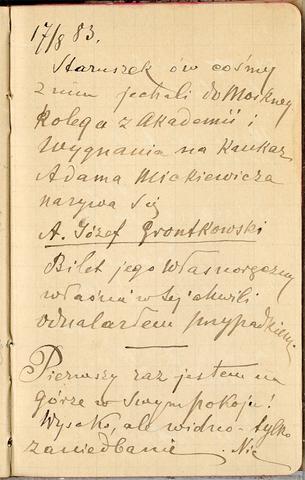 17/8 83.
Staruszek ów cośmy
z nim jechali do Moskwy
kolega z Akademii i
wygnania na Kaukaz
Adama Mickiewicza
nazywa się
A. Józef Grontkowski
Bilet jego własnoręczny
właśnie w tej chwili
odnalazłem przypadkiem.
Pierwszy raz jestem na
górze w swym pokoju!
Wysoko, ale widno - tylko
zaniedbanie. Nic